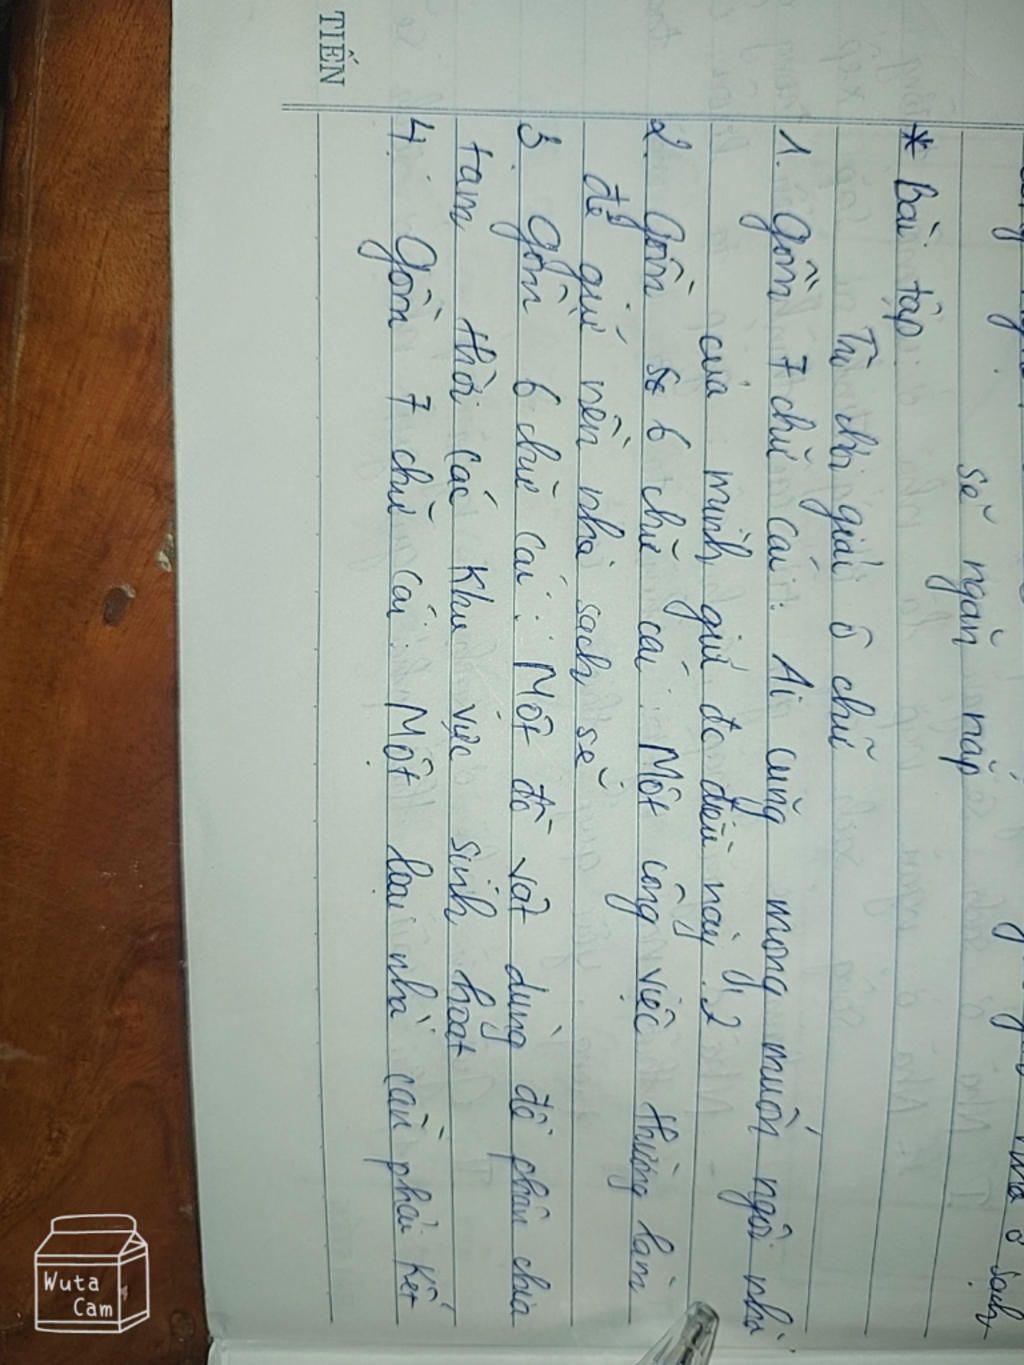 sẽ ngăn nắp
* Bài tập
Trò chơi giải ô chữ
1. Gồm 7 chữ cái: Ai cũng mong muốn ngôi nhà
của mình giữ đc điều này?
2. Gồm 6 chữ cái: Một công việc thường làm
để giữ nền nhà sạch sẽ
3. Gồm 6 chữ cái: Một đồ vật dùng để phân chia
tạm thời các khu vực sinh hoạt
4. Gồm 7 chữ cái: Một loại nhà cần phải kết
TIẾN
Wuta
Cam